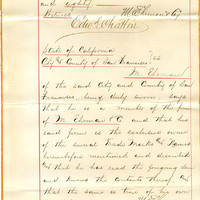 and eighty.
Witness M. Ehrman & Co
State of California
City & County of San Francisco } ss
M. Ehrman
of the said City and County of San
Francisco being duly sworn says
that he is a member of the firm
of M. Ehrman & Co and that the
said firm is the exclusive owner
of the several Trade Marks & Names
hereinbefore mentioned and described
and that he has read the foregoing
and knows the contents thereof and
that the same is true of his own